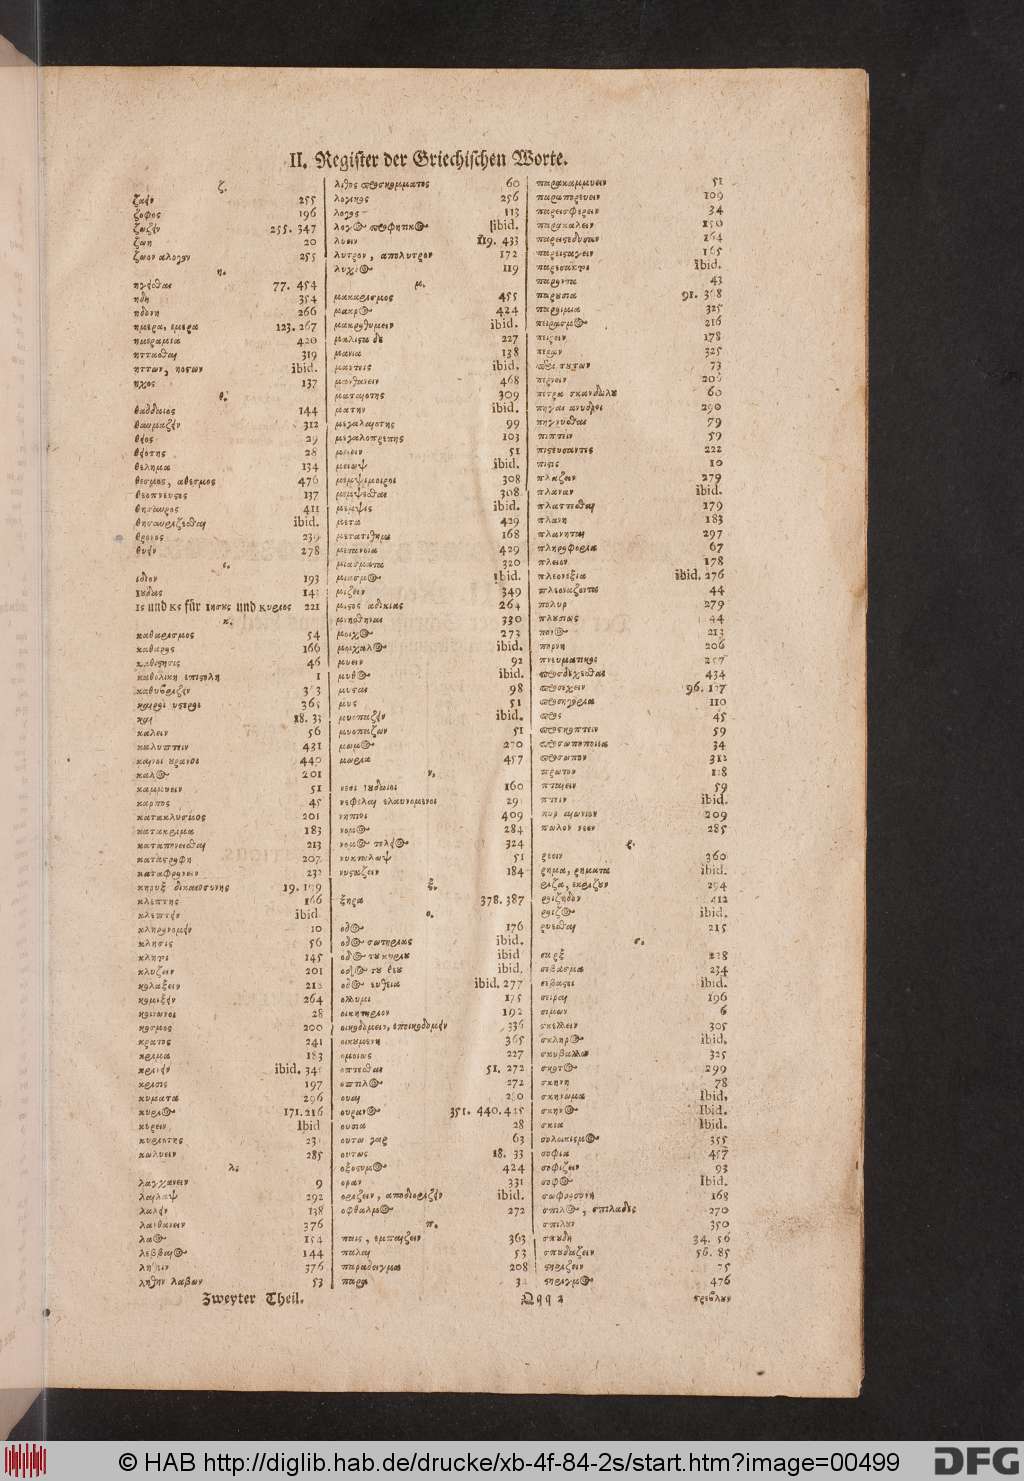 II. Register der Griechischen Worte.
ζ.
ζαήν 255
ζοφος 196
ζωζήν 255. 347
ζωη 20
ζωον αλογον 255
η.
ηγείσθαι 77. 454
ηδη 354
ηδονη 266
ημερα, εμερα 123. 267
ημεραμια 420
ηττασθαι 319
ηττων, ησσων ibid.
ηχος 137
θ.
θαδδαιος 144
θαυμαζήν 312
θήος 29
θήοτης 28
θελημα 134
θεσμος, αθεσμος 476
θεοπνευςος 137
θησαυρος 411
θησαυριζεσθαι ibid.
θρονος 239
θυήν 278
ι.
ιδιον 193
ιουδας 141
ις und κς für ιησους und κυριος 221
κ.
καθαρισμος 54
καθαρος 166
καθιςησις 46
καθολικη επιςολη 1
καθυβριζήν
καιροι υςεροι
και 18. 33
καλειν 56
καλυπτειν 431
καινοι ουρανοι 440
καλος 201
καμμυειν 51
καρπος 45
κατακλυσμος 201
κατακριμα 183
καταπονεισθαι 213
καταςροφη 207
καταφρονειν 232
κηρυξ δικαιοσυνης 19. 199
κλεπτης 166
κλεπτήν ibid
κληρονομήν 10
κλησις 56
κλητοι 145
κλυζειν 201
κολαζειν 212
κομιζήν 264
κοινωνοι 28
κοσμος 200
κρατος 241
κριμα 183
κρινήν ibid.
κρισις 197
κυματα 296
κυριος 171. 216
κυρειν Ibid
κυριοτης
κωλυειν 285
λ.
λαγχανειν 9
λαιλαψ 292
λαλήν 138
λανθανειν 376
λαος 154
λεββαιος 144
ληθειν 376
ληθην λαβων 53
λιθος προσκομματος 60
λογικος 256
λογος 113
λογος προφητικος ibid.
λυειν 119. 433
λυτρον, απολυτρον 172
λυχνος 119
μ.
μακαρισμος 455
μακρος 424
μακροθυμειν ibid.
μαλιςα δε 227
μανια 138
μαντεις ibid.
μανθανειν 468
ματαιοτης 309
ματην ibid.
μεγαλειοτης 99
μεγαλοπρεπης 103
51
μειωψ ibid.
μεμψιμοιροι 308
μεμψεσθαι 308
μεμψις ibid.
μετα 429
μετατιθημι 168
μετανοια 429
μιασματα 320
μιασμος ibid.
μιζειν 349
μισθος αδικιας 264
μιμησθηναι 330
μοιχος 273
μοιχαλος ibid.
μυειν 92
μυθος ibid.
μυςαι 98
μυς 51
μυωπαζήν ibid.
μυωπαζων 51
μωμος 270
μωρια 457
ν.
νεοι ιουδαιοι 160
νεφελαι ελαυνομεναι
νηπιοι 409
νομος 284
νομος τελήος 324
νυκταλωψ 51
νυςαζειν 184
ξ.
ξηρα 378. 387
ο.
οδος 176
οδος σωτηριας ibid.
οδος του κυριου ibid
οδος του θεου ibid.
οδος ευθεια ibid. 277
οιδαμι 175
οικητηριον 192
οικοδομειν, εποικοδομήν 336
οικουμενη 365
ομοιως 227
οπτεσθαι 51. 272
οπτιλος 272
ουαι
ουρανος 351. 440. 425
ουσια 28
ουτω γαρ 63
ουτως 18. 33
οξοσυμος 424
οραν 331
οριζειν, αποδιοριζήν ibid.
οφθαλμος 272
π.
παις, εμπαιζειν 363
παλαι 53
παραδειγμα 208
παρα
παρακαμμυειν 51
παραπορευειν 109
παρεισφερειν 34
παρακαλειν 150
παρεισεδυσαν 164
παρεισαγειν 165
παρεισακτοι ibid.
παροντα 43
παρουσια
παροιμια 325
πειρασμος 216
πειρειν 178
περαν 325
περι τουτων 73
περνειν
πετρα σκανδαλου 60
πηγαι ανυδροι 290
πηγνυσθαι 79
πιπτειν 59
πιςευσαντες 222
πιςις 10
πλαζειν 279
πλαναν ibid.
πλαττεσθαι 179
πλανη 183
πλανηται 297
πληροφορια 67
πλειον 178
πλεονεξια ibid. 276
πλεοναζοντα 44
πολυρ 279
πλουσιως 44
ποιος 213
πορνη 206
πνευματικοι
προσδεχεσθαι 434
προσεχειν
προσηγορια 110
προς 45
προσκοπτειν 59
προσωποποιια 34
προσωπον 312
πρωτον
πταιειν 59
πτειν ibid.
πυρ αιωνιον 209
πωλον νεον 285
ρ.
ρεειν 360
ρημα, ρηματα ibid.
ριζα, εκριζουν 294
ροιζηδον 412
ροιζος ibid.
ρυεσθαι 215
σ.
σαρξ
σεβασμα 234
σεβαςοι ibid.
σειραι 196
σιμων 6
σκελλειν 305
σκληρος ibid.
σκυβαλλον 325
σκοτος 299
σκηνη 78
σκηνωμα Ibid.
σκηνος Ibid.
σκια Ibid.
σολοικισμος 355
σοφια 457
σοφιζειν 93
σοφος Ibid.
σωφροσυνη 168
σπιλος, σπιλαδες 270
σπιλουν 350
σπουδη 34. 56
σπουδαζειν 56. 85
ςηριζειν 75
ςηριγμος 476
Zweyter Theil.
Qqq 2
ςρεβλουν
© HAB http://diglib.hab.de/drucke/xb-4f-84-2s/start.htm?image=00499
DFG